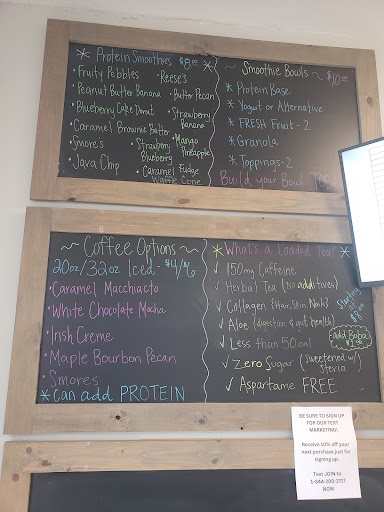 * Protein Smoothies $8.00 *
• Fruity Pebbles
• Reese's
• Peanut Butter Banana
• Butter Pecan
• Blueberry Cake Donut
• Strawberry Banana
• Caramel Brownie Batter
• Mango Pineapple
• Smores
• Strawberry Blueberry
• Java Chip
• Caramel Fudge
Waffle Cone
Smoothie Bowls ~ $10.00
* Protein Base
* Yogurt or Alternative
* FRESH Fruit - 2
* Granola
* Toppings - 2
Build your Bowl
~ Coffee Options ~
20oz/32oz Iced - $4/$6
• Caramel Macchiacto
• White Chocolate Mocha
• Irish Creme
• Maple Bourbon Pecan
• Smores
* Can add PROTEIN
* What's a Loaded Tea? *
✓ 150mg Caffeine
✓ Herbal Tea (No additives)
✓ Collagen (Hair, Skin, Nails)
✓ Aloe (digestion & gut health)
✓ Less than 50 cal
✓ Zero Sugar (sweetened w/ Stevia)
✓ Aspartame FREE
Starting @
add Boba
BE SURE TO SIGN UP
FOR OUR TEXT
MARKETING!
Receive 10% off your
next purchase just for
signing up.
Text JOIN to
1-844-200-2717
NOW